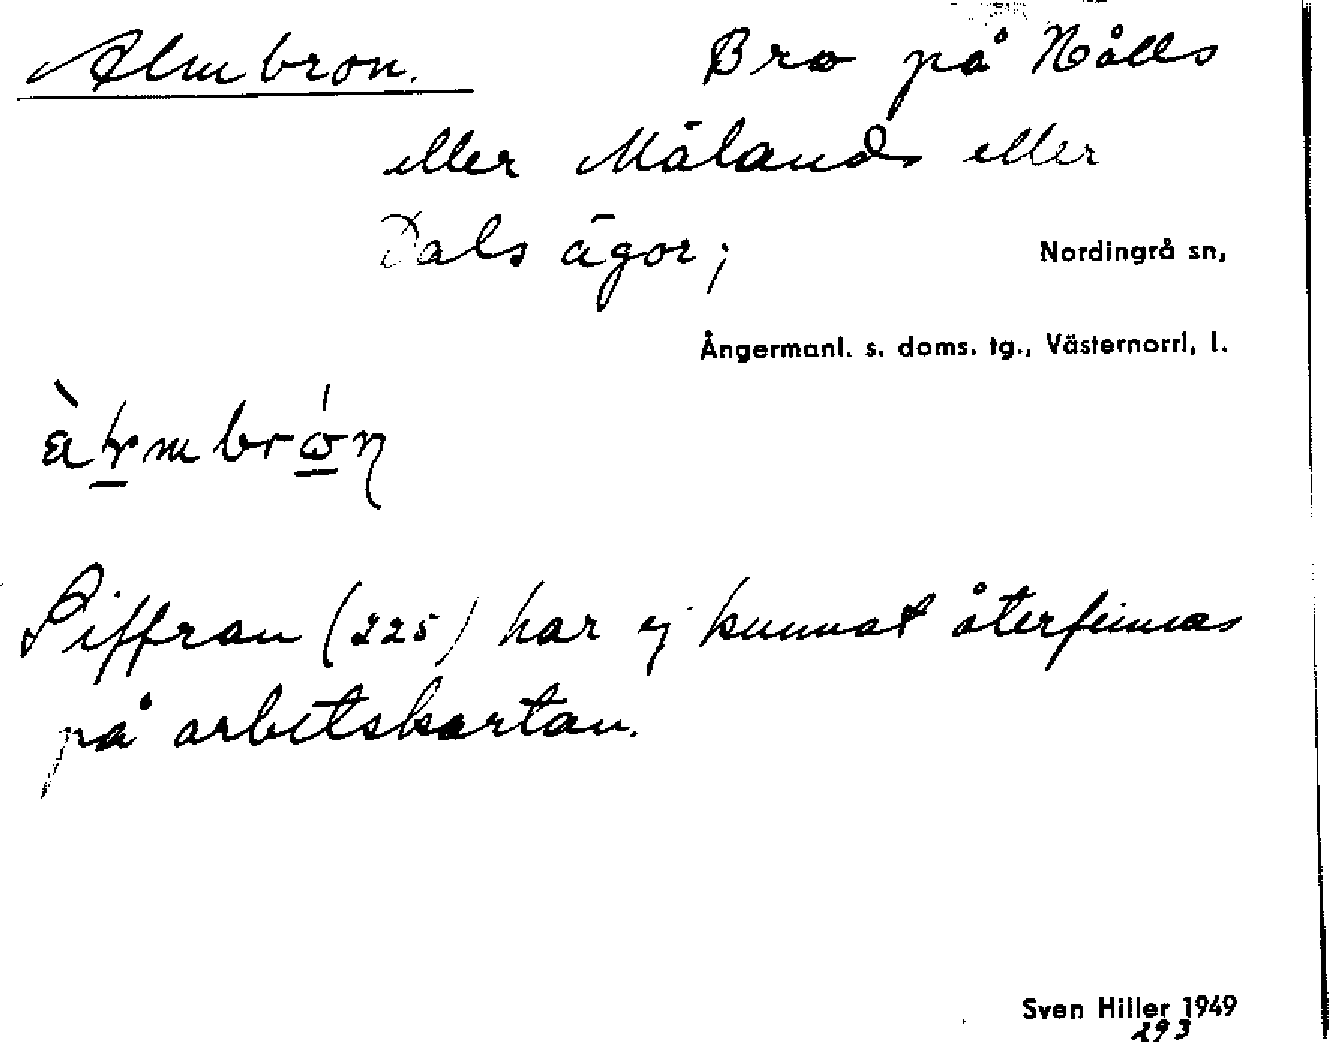 Almbron. Bro på Hålls
eller Mälands eller
Dals ägor;
Nordingrå sn,
Ångermanl. s. doms. tg., Västernorrl. l.
Siffran (225) har ej kunnat återfinnas
på arbetskartan.
Sven Hiller 1949
293